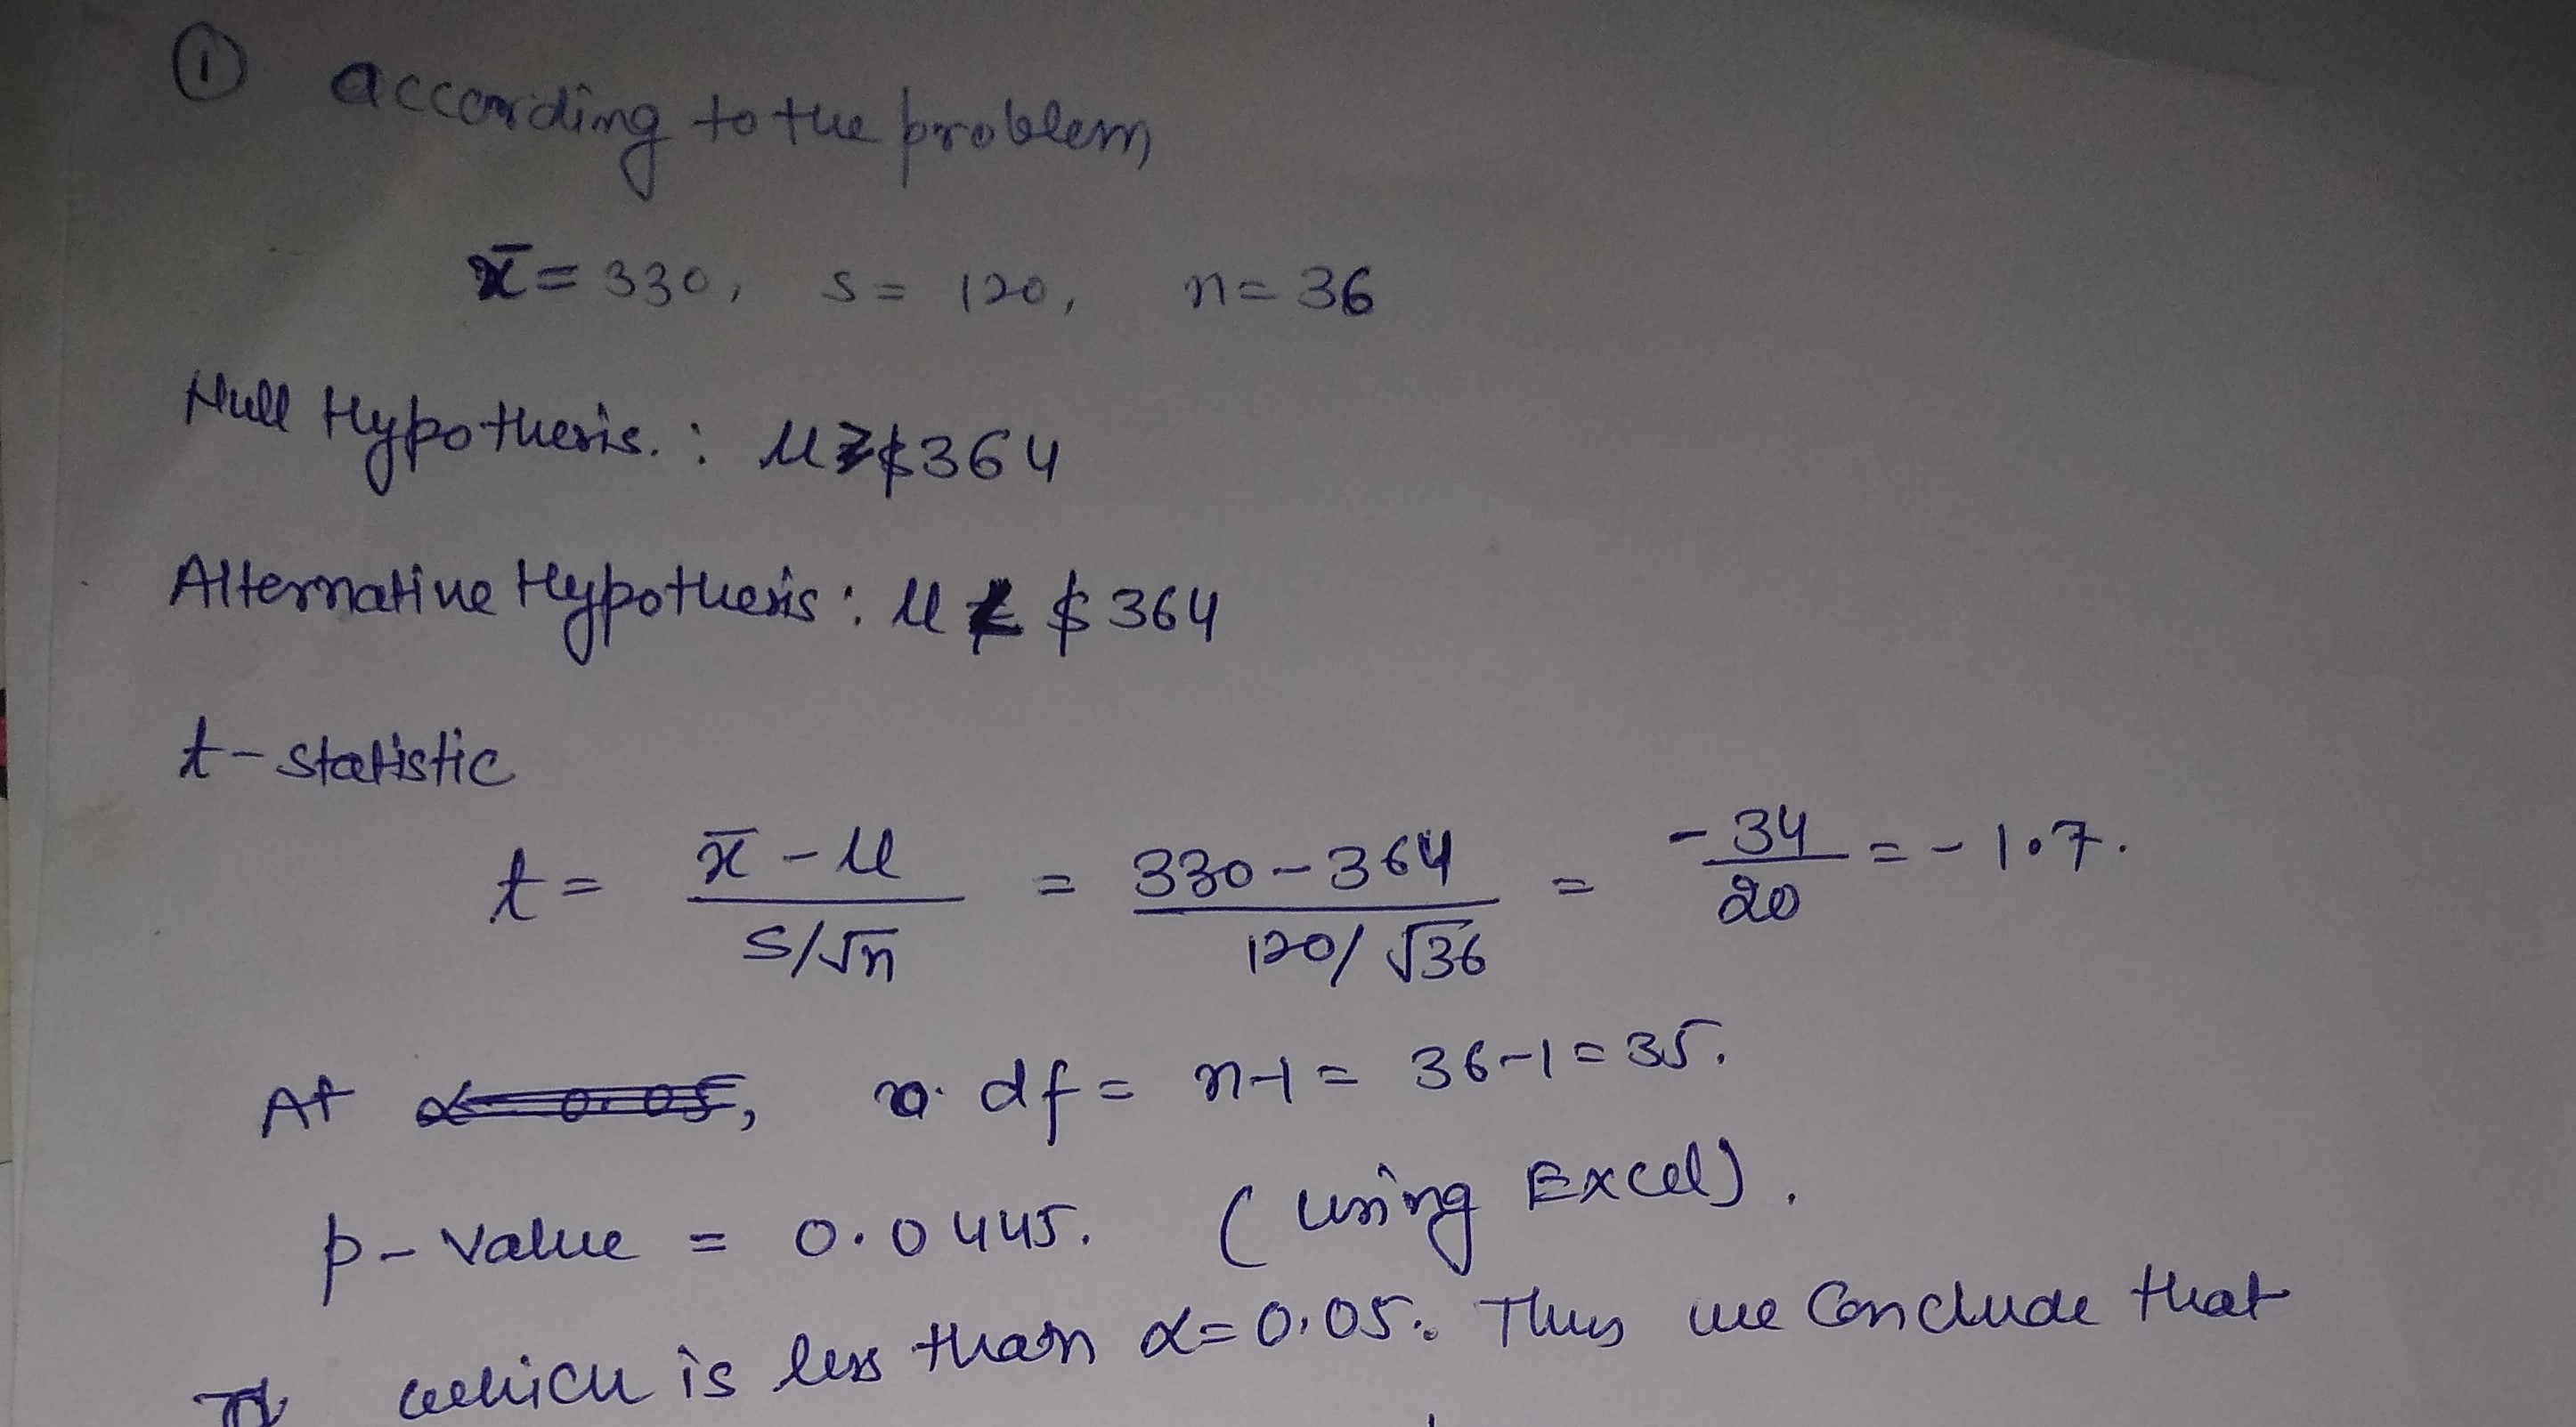 ① according to the problem
x̄ = 330, s = 120, n = 36
Null Hypothesis. : μ ≥ $364
Alternative Hypothesis : μ < $364
t - statistic
t = (x̄ - μ)/(s/√n) = (330 - 364)/(120/√36) = -34/20 = -1.7.
At α = 0.05, df = n-1 = 36-1 = 35.
p - value = 0.0445. (using Excel).
which is less than α = 0.05. Thus we Conclude that